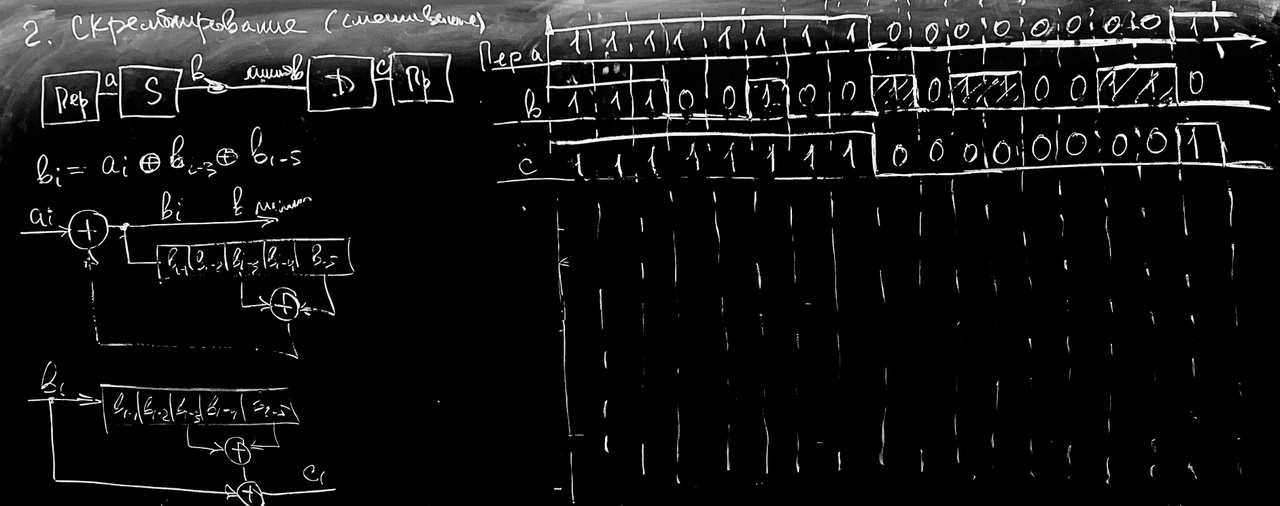 2. Скремблирование (смешивание)
Пер a S в линия в D c Пр
вi = ai ⊕ вi-3 ⊕ вi-5
ai ⊕ вi к линии
вi-1 вi-2 вi-3 вi-4 вi-5
⊕
вi
вi-1 вi-2 вi-3 вi-4 вi-5
⊕
⊕ ci
Пер a 1 1 1 1 1 1 1 1 0 0 0 0 0 0 0 1
в 1 1 1 0 0 1 0 0 0 0 0 1
c 1 1 1 1 1 1 1 1 0 0 0 0 0 0 0 0 1